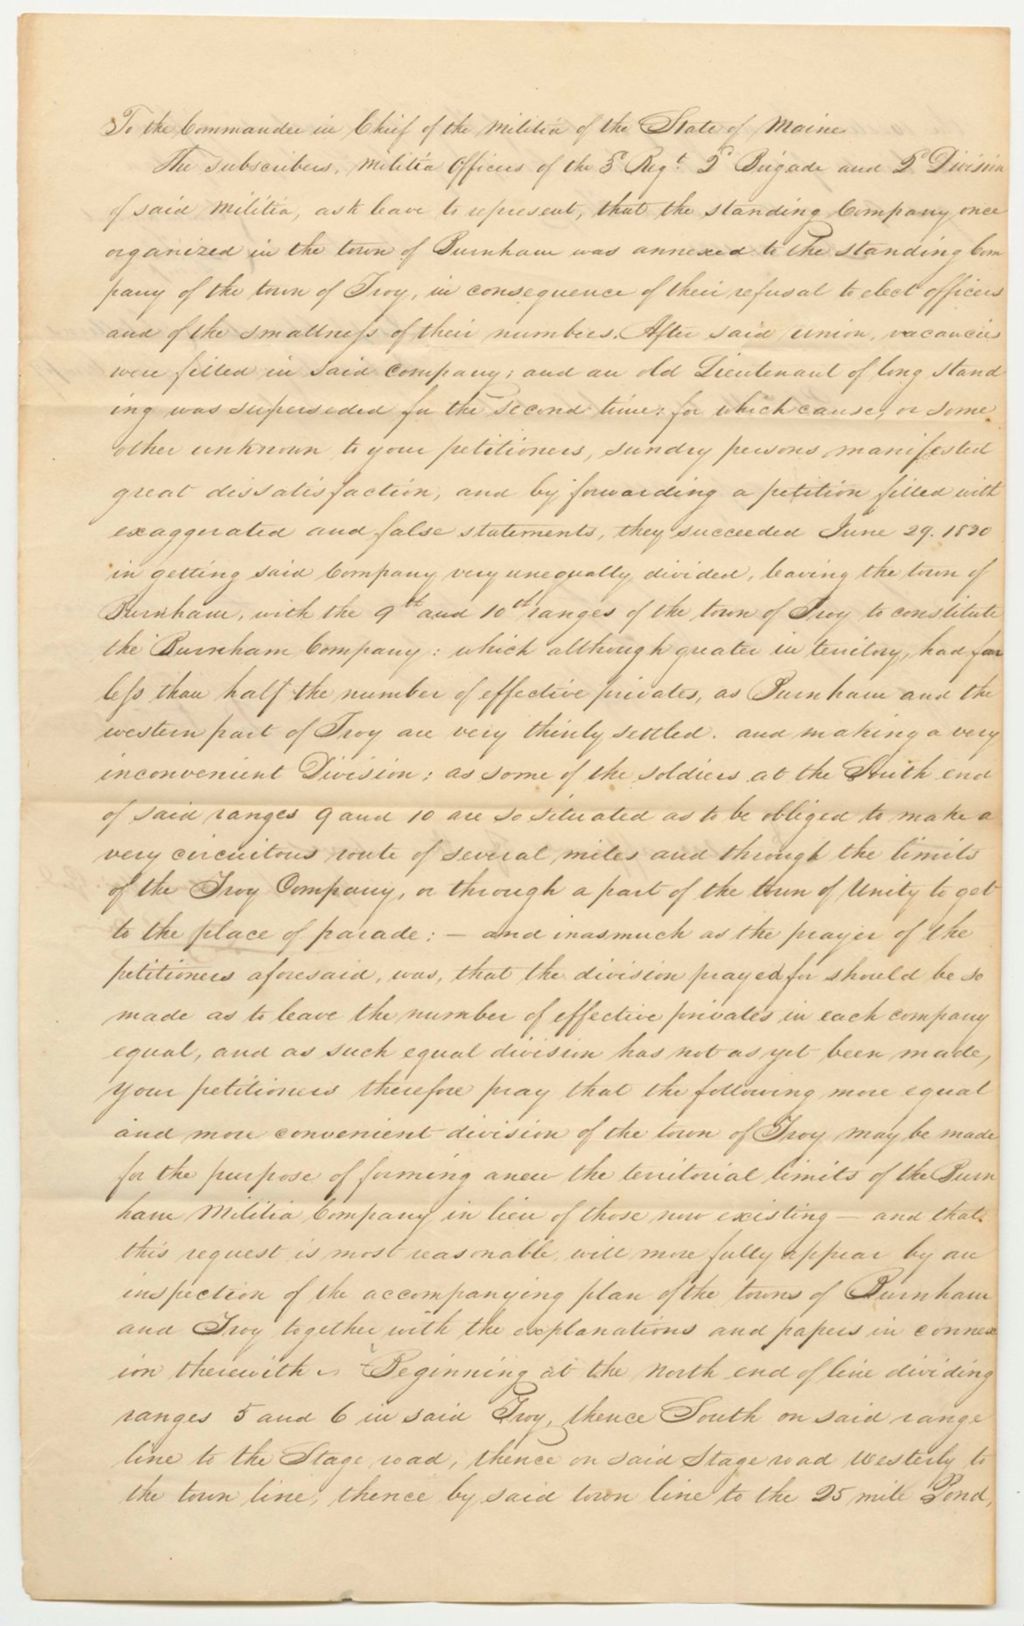 To the Commander in Chief of the Militia of the State of Maine
The subscribers, Militia Officers of the 3d Regt. 2d Brigade and 2d Division
of said Militia, ask leave to represent, that the standing Company once
organized in the town of Burnham was annexed to the standing Com
pany of the town of Troy, in consequence of their refusal to elect officers
and of the smallness of their numbers. After said union, vacancies
were filled in said Company; and an old Lieutenant of long stand
ing was superseded for the second time; for which cause, or some
other unknown to your petitioners, sundry persons manifested
great dissatisfaction, and by forwarding a petition filled with
exaggerated and false statements, they succeeded June 29. 1830
in getting said Company very unequally divided, leaving the town of
Burnham, with the 9th and 10th ranges of the town of Troy to constitute
the Burnham Company: which although greater in territory, had far
less than half the number of effective privates, as Burnham and the
western part of Troy are very thinly settled. and making a very
inconvenient Division; as some of the soldiers at the South end
of said ranges 9 and 10 are so situated as to be obliged to make a
very circuitous route of several miles and through the limits
of the Troy Company, or through a part of the town of Unity to get
to the place of parade: — and inasmuch as the prayer of the
petitioners aforesaid, was, that the division prayed for should be so
made as to leave the number of effective privates in each company
equal, and as such equal division has not as yet been made,
your petitioners therefore pray that the following more equal
and more convenient division of the town of Troy may be made
for the purpose of forming anew the territorial limits of the Burn
ham Militia Company in lieu of those now existing — and that
this request is most reasonable will more fully appear by an
inspection of the accompanying plan of the towns of Burnham
and Troy together with the explanations and papers in connex
ion therewith Beginning at the north end of line dividing
ranges 5 and 6 in said Troy, thence South on said range
line to the Stage road, thence on said Stage road westerly to
the town line, thence by said town line to the 25 mile Pond,